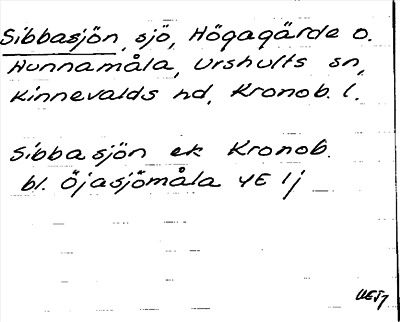 Sibbasjön, sjö, Högagärde o.
Hunnamåla, Urshults sn,
Kinnevalds hd, Kronob. l.
Sibbasjön ek Kronob.
bl. Öjasjömåla 4E 1j